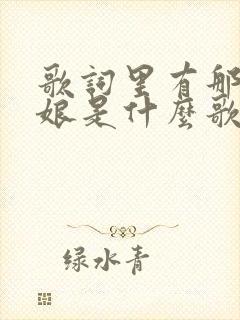 歌詞里有那
娘是什麼歌
绿水青